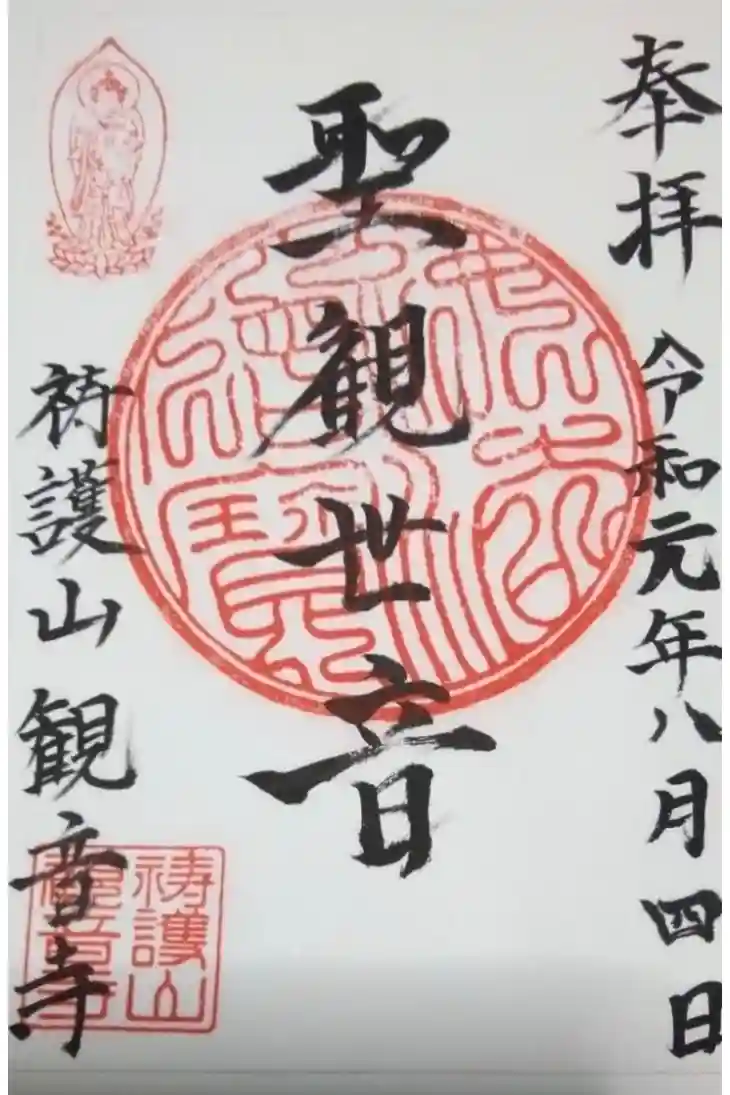 奉拝
令和元年八月四日
聖観世音
祷護山 観音寺
祷護山
観音寺